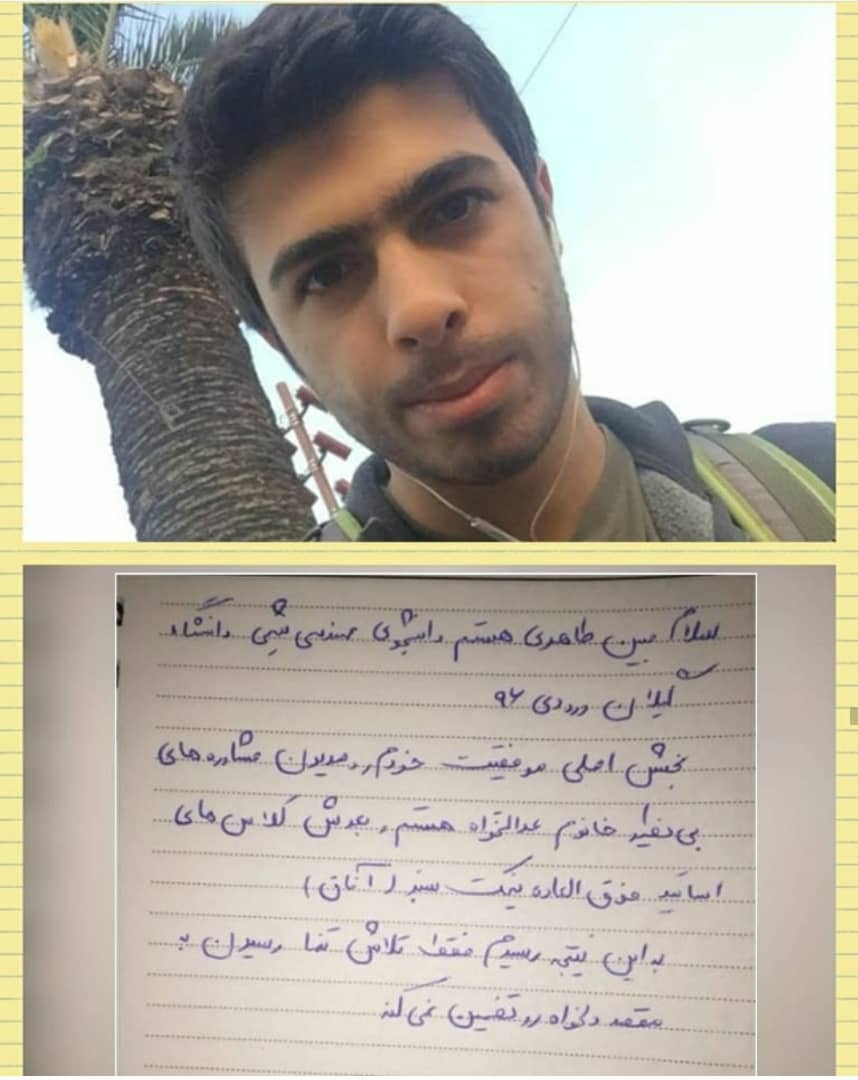 سلام مبین طاهری هستم دانشجوی مهندسی شیمی دانشگاه
گیلان ورودی ۹۶
بخش اصلی موفقیت خودم رو مدیون مشاوره های
بی نظیر خانوم عدالتخواه هستم و بعدش کلاس های
اساتید فوق العاده نیمکت سبز (آفاق)
به این نتیجه رسیدم فقط تلاش تنها رسیدن به
مقصد دلخواه رو تضمین نمی کنه